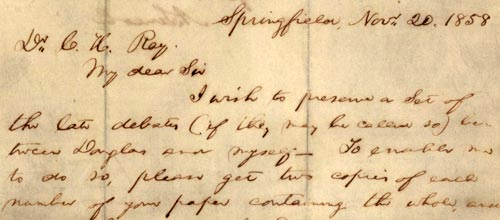 Springfield, Novr. 20. 1858
Dr. C. H. Ray.
My dear Sir
I wish to preserve a Set of
the late debates (if they may be called so) be-
tween Douglas and myself— To enable me
to do so, please get two copies of each
number of your paper containing the whole, and